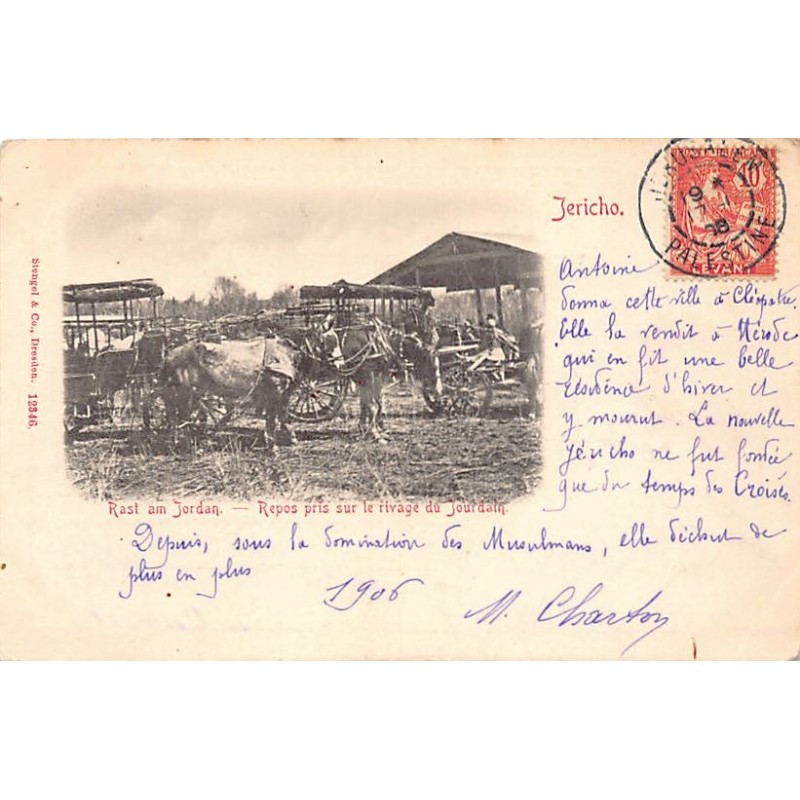 Jericho.
JERUSALEM
PALESTINE
10
LEVANT
Stengel & Co., Dresden. 12346.
Antoine
donna cette ville à Cléopatre.
Elle la rendit à Hérode
qui en fit une belle
résidence d'hiver et
y mourut. La nouvelle
Jéricho ne fut fondée
que du temps des Croisés.
Rast am Jordan. — Repos pris sur le rivage du Jourdain.
Depuis, sous la domination des Musulmans, elle déchut de
plus en plus
1906
M. Charton